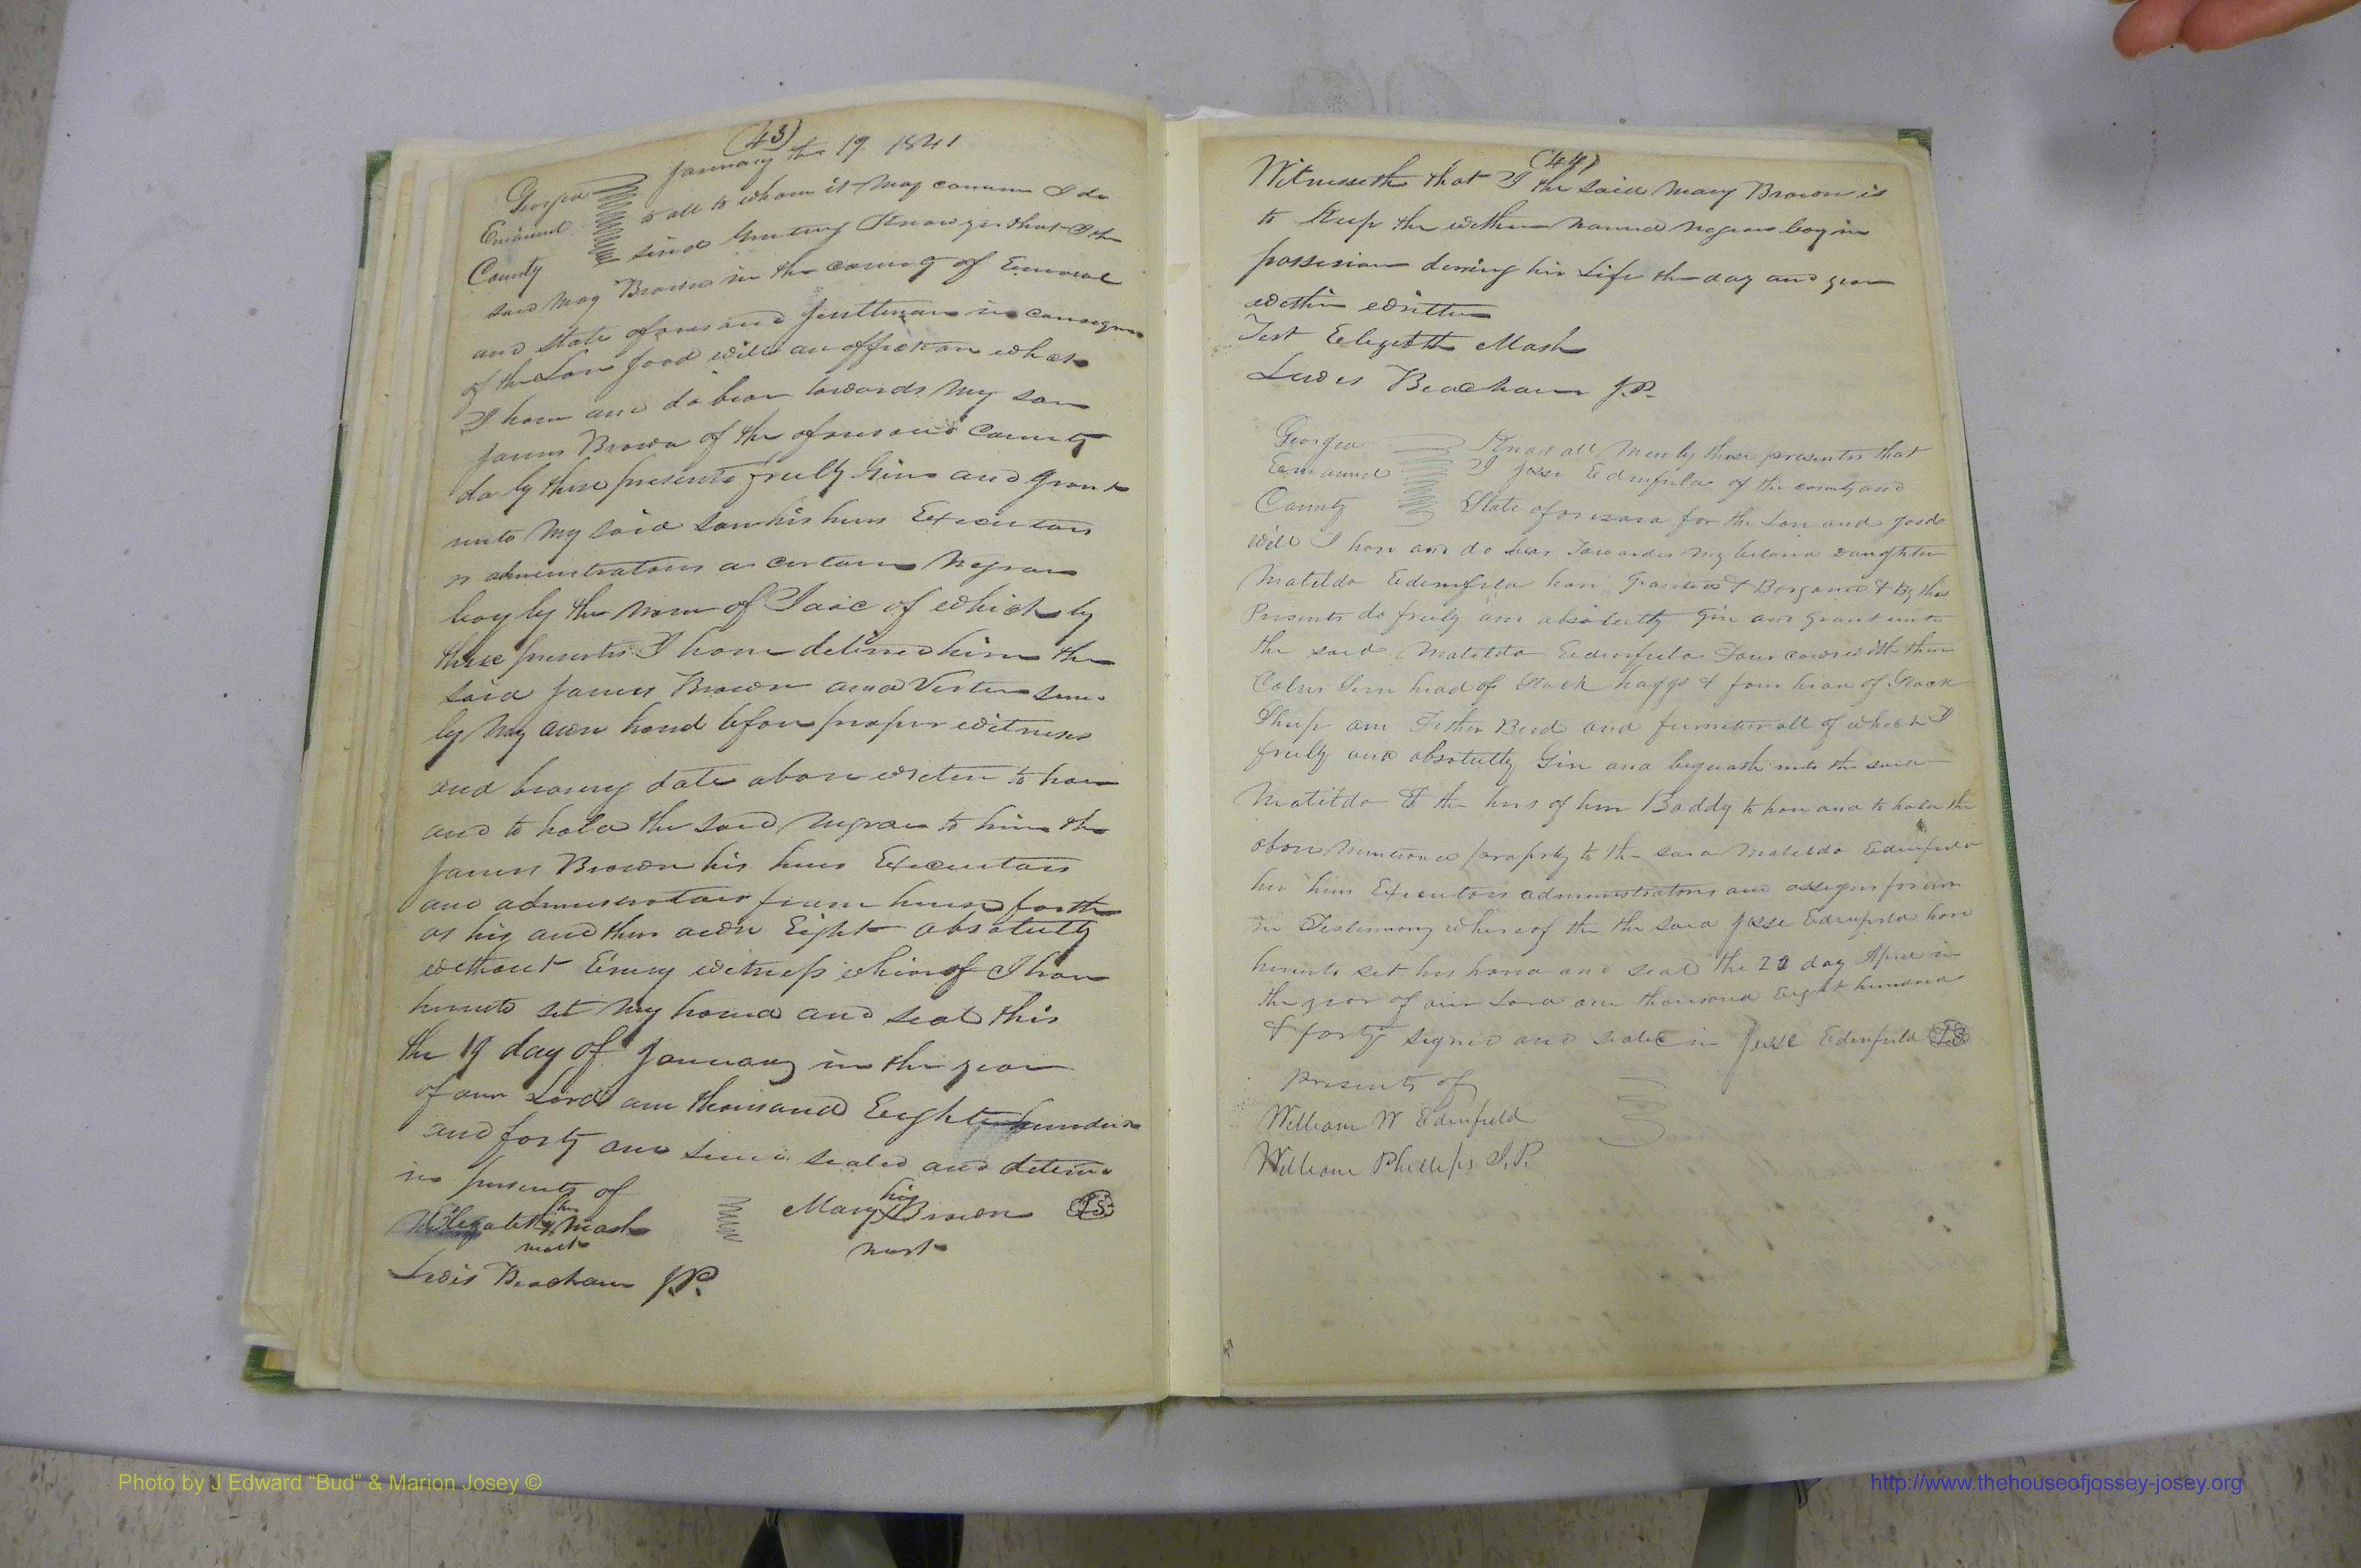 (43)
January the 19 1841
Georgia
Emanuel
County
to all to whom it May concern I do
send Greeting Know ye that I the
said May Brown in the county of Emanuel
and State aforesaid Gentleman in
of the Love Good will an affection which
I have and do bear towards My son
James Brown of the aforesaid County
do by these presents freely Give and Grant
unto My said son his heirs Executors
or administrators a certain Negro
boy by the name of Isaic of which by
these presents I have delivered him the
said James Brown
by My own hand before proper witness
and bearing date above writen to have
and to hold the said Negro to him the
James Brown his heirs Executors
and administrators from hence forth
as his and there own Right absolutly
without witness whereof I have
hereunto set My hand and seal this
the 19 day of January in the year
of our Lord one thousand Eight hundred
and forty one sealed and
in presents of
Mash
mark
his
Mary X Brown LS
mark
Lewis Beacham J.P.
(44)
Witnesseth that I the said Mary Brown is
to Keep the within named negro boy in
possession during his Life the day and year
within written
Test Elizabeth Mash
Lewis Beacham J.P.
Georgia
Emanuel
County
Know all Men by these presents that
I Jesse Edenfield of the county and
State aforesaid for the Love and good
will I have and do bear Towards My beloved daughter
Matilda Edenfield have Granted & Bargained & By these
Presents do freely and absolutly Give and Grant unto
the said Matilda Edenfield Four cows with there
Calves head of Stock hoggs & four head of Stock
Sheep one Fether Bed and furniture all of which I
freely and absolutly Give and bequeath unto the said
Matilda & the heirs of her Boddy to have and to hold the
above mentioned property to the said Matilda Edenfield
her heirs Executors administrators and assigns forever
in Testimony whereof the the said Jesse Edenfield have
hereunto set his hand and seal the 22 day Aprel in
the year of our Lord one thousand Eight hundred
& forty signed and sealed in Jesse Edenfield LS
presents of
William W Edenfield
William Phillips J.P.
Photo by J Edward "Bud" & Marion Josey ©
http://www.thehouseofjossey-josey.org